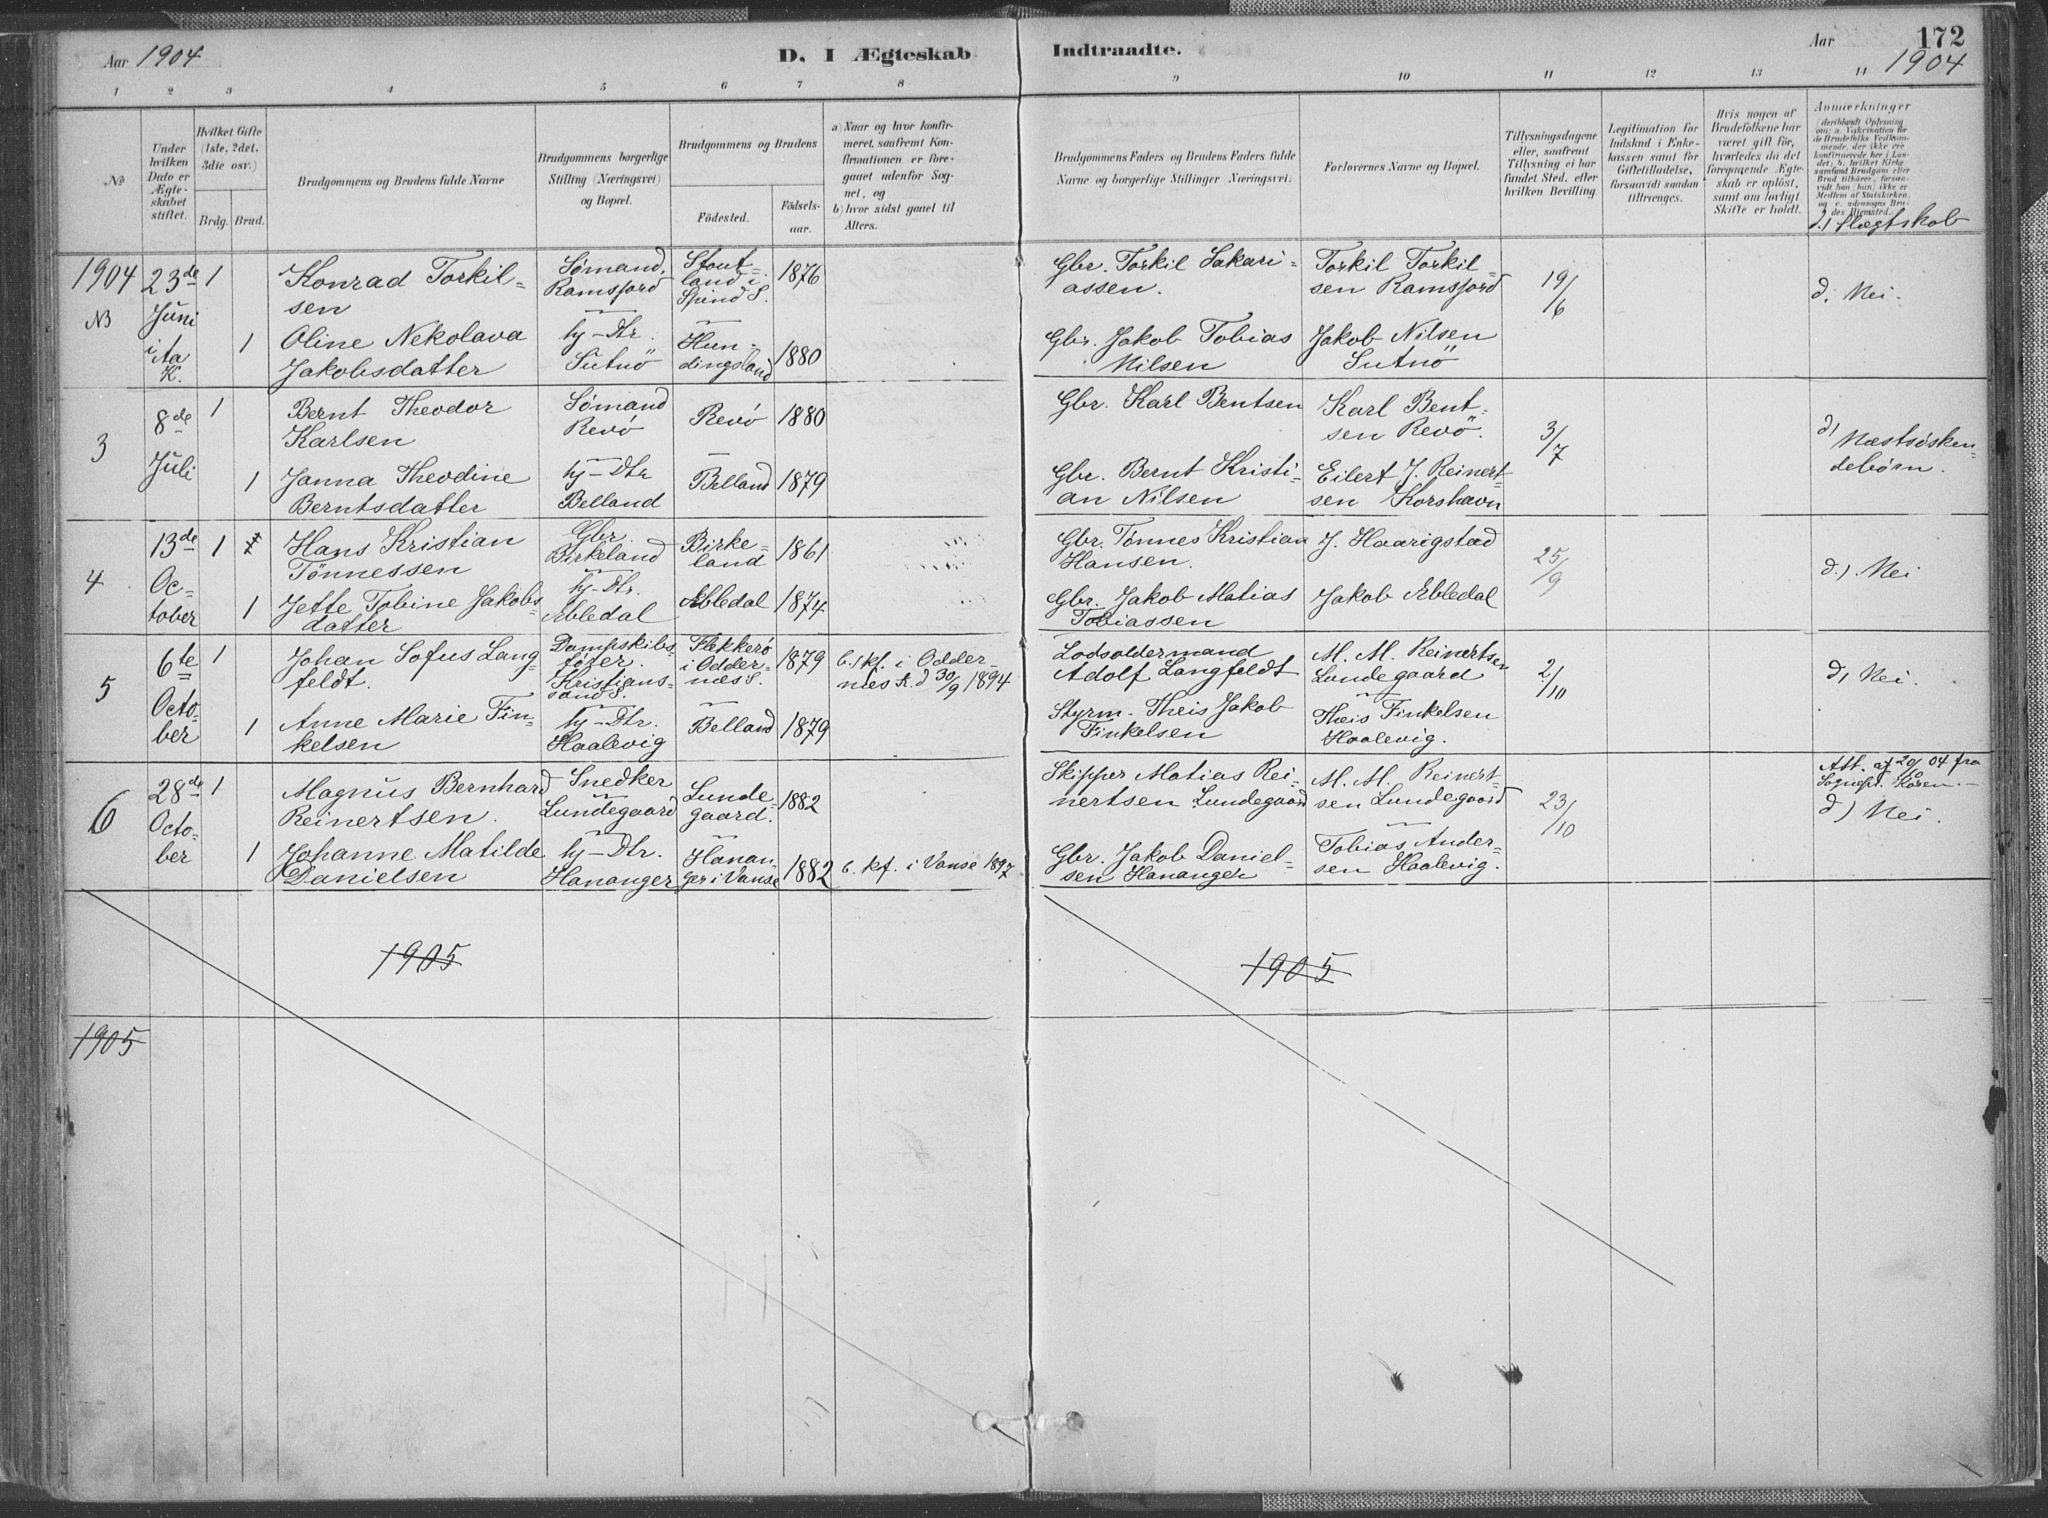 Aar 1904
D. I Ægteskab
Indtraadte.
Aar 172
1904
1 2 3 4 5 6 7 8 9 10 11 12 13 14
No
Under hvilken Dato er Ægteskabet stiftet.
Hvilket Gifte (1ste, 2det, 3die osv.)
Brdg. Brud.
Brudgommens og Brudens fulde Navne
Brudgommens borgerlige Stilling (Næringsvei) og Bopæl.
Brudgommens og Brudens
Födested.
Födsels-aar.
a) Naar og hvor konfirmeret, saafremt Konfirmationen er foregaaet udenfor Sognet, og
b) hvor sidst gaaet til Alters.
Brudgommens Faders og Brudens Faders fulde Navne og borgerlige Stillinger (Næringsvei).
Forlovernes Navne og Bopæl.
Tillysningsdagene eller, saafremt Tillysning ei har fundet Sted, efter hvilken Bevilling.
Legitimation for Indskud i Enkekassen samt for Giftetilladelse, forsaavidt saadan tiltrænges.
Hvis nogen af Brudefolkene har været gift før, hvorledes da det foregaaende Ægteskab er oplöst, samt om lovligt Skifte er holdt.
Anmærkninger
d.) Slægtskab
1904
23de Juni i ita K.
1
Konrad Torkil-
sen
Sømand,
Ramsfjord
Stout-
land i
Spind S.
1876
Gbr. Torkil Sakari-
assen.
Torkil Torkil-
sen Ramsfjord
19/6
d. Nei.
1
Oline Nekolava
Jakobsdatter
hj-Dtr.
Sutnö
Hun-
dingsland
1880
Gbr. Jakob Tobias
Nilsen
Jakob Nilsen
Sutnö
3
8de Juli
1
Bernt Theodor
Karlsen
Sømand
Revø
Revø
1880
Gbr. Karl Bentsen
Karl Bent-
sen Revö.
3/7
d) Næstsösken-
debørn.
1
Janna Theodine
Berntsdatter
hj-Dtr
Belland
Belland
1879
Gbr. Bernt Kristi-
an Nilsen
Eilert J. Reinert-
sen Korshavn
4
13de October
1
Hans Kristian
Tönnessen
Gbr.
Birkeland
Birke-
land
1861
Gbr. Tönnes Kristian
Hansen.
J. Haarigstad
25/9
d.). Nei
1
Jette Tobine Jakobs-
datter
hj-Dtr.
Abledal
Abledal
1874
Gbr. Jakob Matias
Tobiassen
Jakob Abledal
5
6te October
1
Johan Sofus Lang-
feldt.
Dampskibs-
fører.
Kristians-
sand S.
Flekkerö
i Odder-
nes S.
1879
b.) kf. i Odder-
nes K. d 30/9 1894
Lodsoldermand
Adolf Langfeldt
M. M. Reinertsen
Lundegaard
2/10
d) Nei.
1
Anne Marie Fin-
kelsen
hj-Dtr.
Haalevig
Belland
1879
Styrm. Theis Jakob
Finkelsen
Theis Finkelsen
Haalevig.
6
28de October
1
Magnus Bernhard
Reinertsen.
Snedker
Lundegaard
Lunde-
gaard.
1882
Skipper Matias Rei-
nertsen Lundegaard
M. M. Reinert-
sen Lundegaard
23/10
Att. af 20/10 04 fra
Sognepr.
d) Nei.
1
Johanne Matilde
Danielsen
hj-Dtr.
Hananger
Hanan-
ger i Vanse
1882
b. kf. i Vanse 1897
Gbr. Jakob Daniel-
sen Hananger
Tobias Ander-
sen Haalevig.
1905
1905
1905